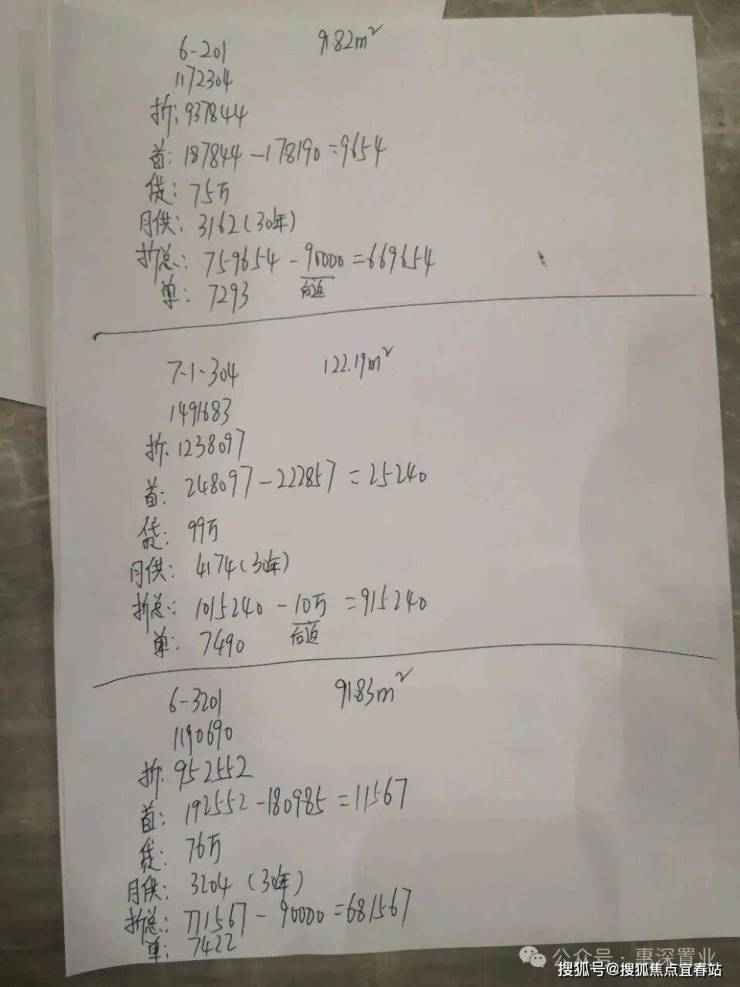 6-201 91.82m²
1172304
折:937844
首:187844-178190=9654
贷:75万
月供:3162(30年)
折总:759654-90000=669654
单:7293 后返
7-1-304 122.19m²
1491683
折:1238097
首:248097-222857=25240
贷:99万
月供:4174(30年)
折总:1015240-10万=915240
单:7490 后返
6-3201 91.83m²
1190690
折:952552
首:192552-180985=11567
贷:76万
月供:3204(30年)
折总:771567-90000=681567
单:7422
公众号·惠深置业
搜狐号@搜狐焦点宜春站